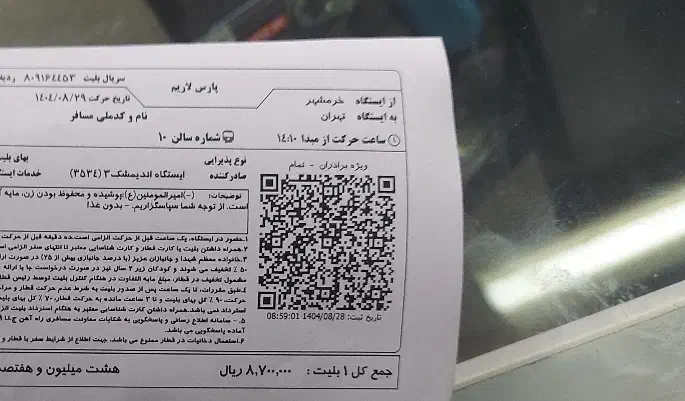 سریال بلیت ۸۰۹۱۶۴۴۵۳ ردیف
پارس لاریم
از ایستگاه خرمشهر
تاریخ حرکت ۱۴۰۴/۰۸/۲۹
به ایستگاه تهران
نام و کدملی مسافر
ساعت حرکت از مبدا ۱۴:۱۰
شماره سالن ۱۰
ویژه برادران - تمام
نوع پذیرایی
بهای بلیت
صادرکننده ایستگاه اندیمشک۳ (۳۵۳۴) خدمات ایستگا
توضیحات: (-)امیرالمومنین(ع):پوشیده و محفوظ بودن زن، مایه آ
است. از توجه شما سپاسگزاریم. - بدون غذا
۱.حضور در ایستگاه، یک ساعت قبل از حرکت الزامی است.ده دقیقه قبل از حرکت
۲.همراه داشتن بلیت یا کارت قطار و کارت شناسایی معتبر تا انتهای سفر الزامی اس
۳.خانواده معظم شهدا و جانبازان عزیز (با درصد جانبازی بیش از ۲۵) در صورت ارا
۵۰ ٪ تخفیف می شوند و کودکان زیر ۲ سال نیز در صورت درخواست جا با ارائه
مشمول تخفیف در قطار، مبلغ مابه التفاوت در هنگام کنترل بلیت توسط رئیس قطار
۴.طبق مقررات، تا یک ساعت پس از صدور بلیت به شرط عدم حرکت قطار و مراجـ
حرکت، ۹۰ ٪ کل بهای بلیت و تا ۳ ساعت مانده به حرکت قطار، ۷۰ ٪ کل بهای بلیت
استرداد نمی باشد.همراه داشتن کارت شناسایی معتبر به هنگام استرداد بلیت الز
۵. سامانه اطلاع رسانی و پاسخگویی به شکایات معاونت مسافری راه آهن ج.ا.ا
آماده پاسخگویی می باشد.
۶.استعمال دخانیات در قطار ممنوع می باشد. جهت اطلاع از شرایط سفر با قطار و
تاریخ ثبت: 1404/08/28 08:59:01
جمع کل ۱ بلیت : ۸,۷۰۰,۰۰۰ ریال
هشت میلیون و هفتصد